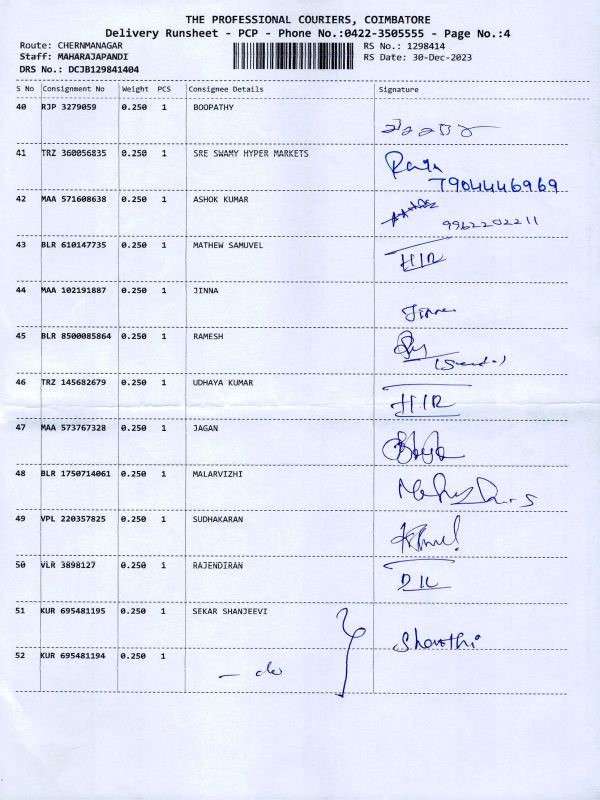 THE PROFESSIONAL COURIERS, COIMBATORE
Delivery Runsheet - PCP - Phone No.:0422-3505555 - Page No.:4
Route: CHERNMANAGAR RS No.: 1298414
Staff: MAHARAJAPANDI RS Date: 30-Dec-2023
DRS No.: DCJB129841404
S No Consignment No Weight PCS Consignee Details Signature
40 RJP 3279059 0.250 1 BOOPATHY
41 TRZ 360056835 0.250 1 SRE SWAMY HYPER MARKETS
7904446969
42 MAA 571608638 0.250 1 ASHOK KUMAR
9962202211
43 BLR 610147735 0.250 1 MATHEW SAMUVEL
44 MAA 102191887 0.250 1 JINNA
Jinna
45 BLR 8500085864 0.250 1 RAMESH
46 TRZ 145682679 0.250 1 UDHAYA KUMAR
47 MAA 573767328 0.250 1 JAGAN
48 BLR 1750714061 0.250 1 MALARVIZHI
49 VPL 220357825 0.250 1 SUDHAKARAN
50 VLR 3898127 0.250 1 RAJENDIRAN
51 KUR 695481195 0.250 1 SEKAR SHANJEEVI
52 KUR 695481194 0.250 1
— do